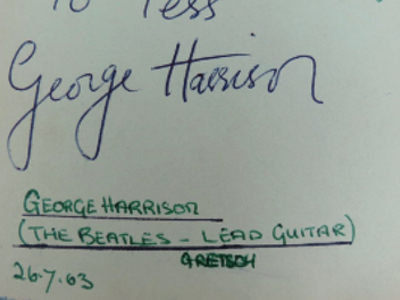 To Tess
George Harrison
GEORGE HARRISON
(THE BEATLES - LEAD GUITAR)
GRETSCH
26.7.63